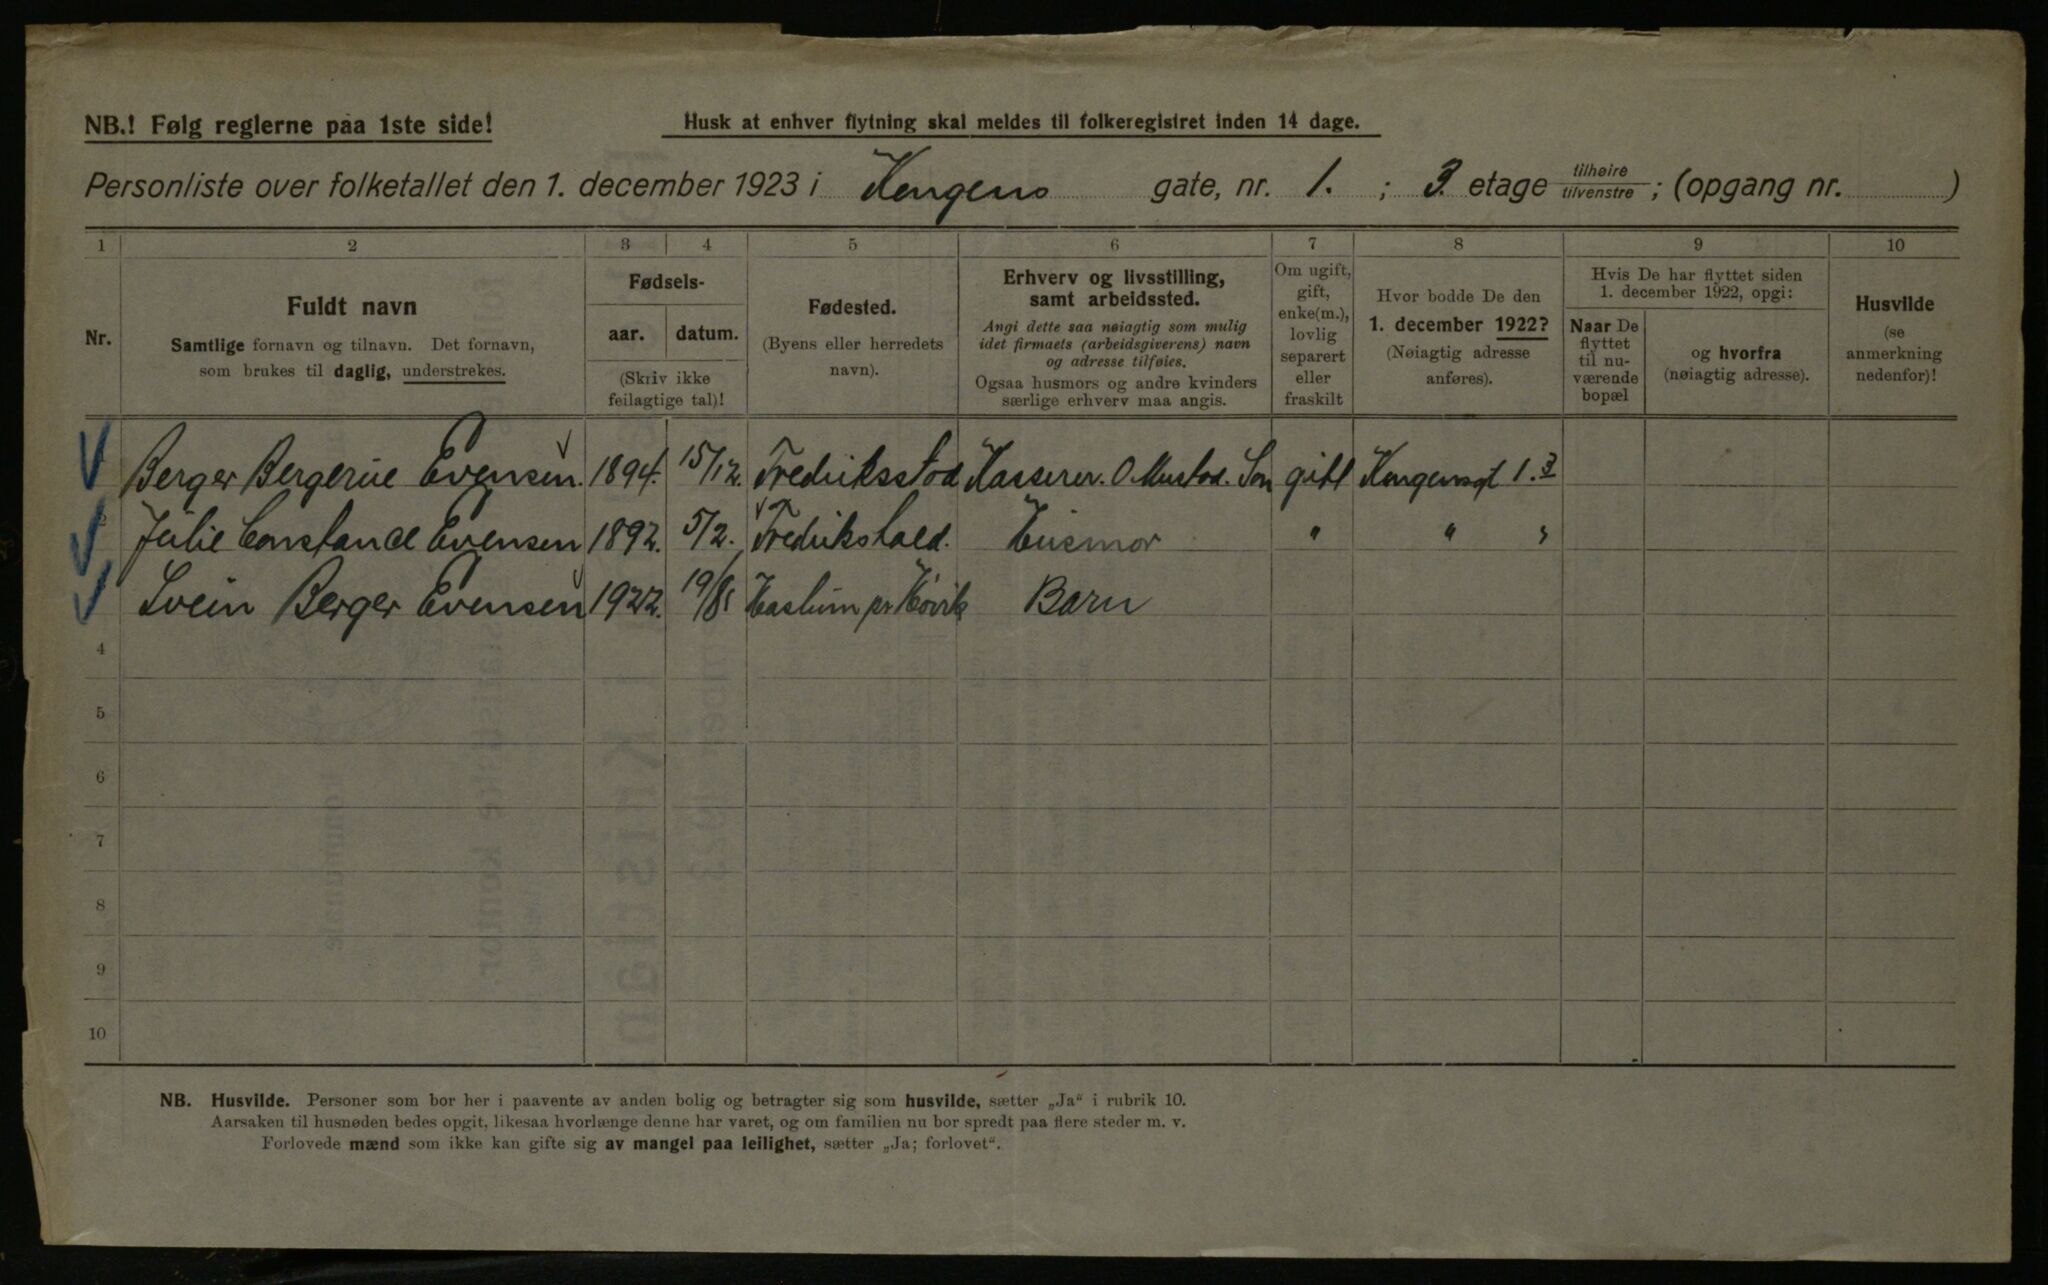 NB.! Følg reglerne paa 1ste side!
Husk at enhver flytning skal meldes til folkeregistret inden 14 dage.
Personliste over folketallet den 1. december 1923 i Kongens gate, nr. 1. ; 3. etage tilhøire tilvenstre ; (opgang nr. )
1 2 3 4 5 6 7 8 9 10
Nr.
Fuldt navn
Samtlige fornavn og tilnavn. Det fornavn,
som brukes til daglig, understrekes.
Fødsels-
aar. datum.
(Skriv ikke
feilagtige tal)!
Fødested.
(Byens eller herredets
navn).
Erhverv og livsstilling,
samt arbeidssted.
Angi dette saa nøiagtig som mulig
idet firmaets (arbeidsgiverens) navn
og adresse tilføies.
Ogsaa husmors og andre kvinders
særlige erhverv maa angis.
Om ugift,
gift,
enke(m.),
lovlig
separert
eller
fraskilt
Hvor bodde De den
1. december 1922?
(Nøiagtig adresse
anføres).
Hvis De har flyttet siden
1. december 1922, opgi:
Naar De
flyttet
til nu-
værende
bopæl
og hvorfra
(nøiagtig adresse).
Husvilde
(se
anmerkning
nedenfor)!
Berger Evensen. 1894. 15/12. Fredriksstad Kasserer. O. Mustad. Søn gift Kongensgt 1. 3
2 Julie Constance Evensen 1892. 5/2. Fredrikstad. Husmor " " "
Svein Berger Evensen 1922. 19/8 Haslum pr Høvik Barn
4
5
6
7
8
9
10
NB. Husvilde. Personer som bor her i paavente av anden bolig og betragter sig som husvilde, sætter „Ja“ i rubrik 10.
Aarsaken til husnøden bedes opgit, likesaa hvorlænge denne har varet, og om familien nu bor spredt paa flere steder m. v.
Forlovede mænd som ikke kan gifte sig av mangel paa leilighet, sætter „Ja; forlovet“.